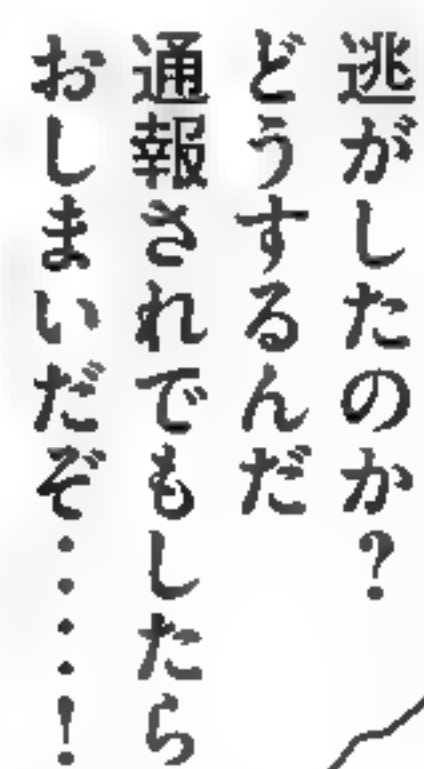 逃がしたのか？
どうするんだ
通報されでもしたら
おしまいだぞ‥‥！